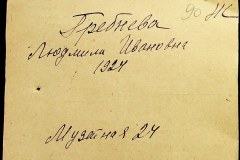 90 Ж
Гребнева
Людмила Ивановна
1924
24